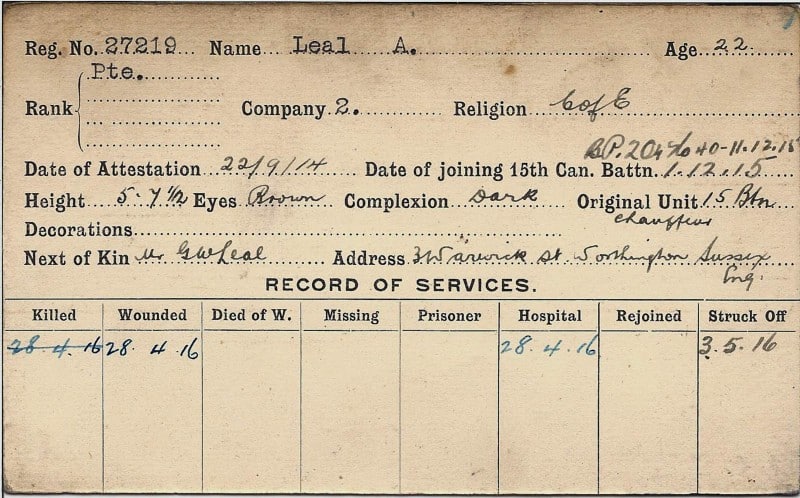 Reg. No. 27219 Name Leal A. Age 22
Rank Pte. Company 2. Religion C of E
B.P. 204 % 40-11.12.15
Date of Attestation 22/9/14 Date of joining 15th Can. Battn. 1.12.15
Height 5-7 1/2 Eyes Brown Complexion Dark Original Unit 15 Btn
Decorations chauffeur
Next of Kin Mr G W Leal Address 3 Warwick St. Worthington Sussex
Eng.
RECORD OF SERVICES.
Killed Wounded Died of W. Missing Prisoner Hospital Rejoined Struck Off
28.4.16 28.4.16 28.4.16 3.5.16